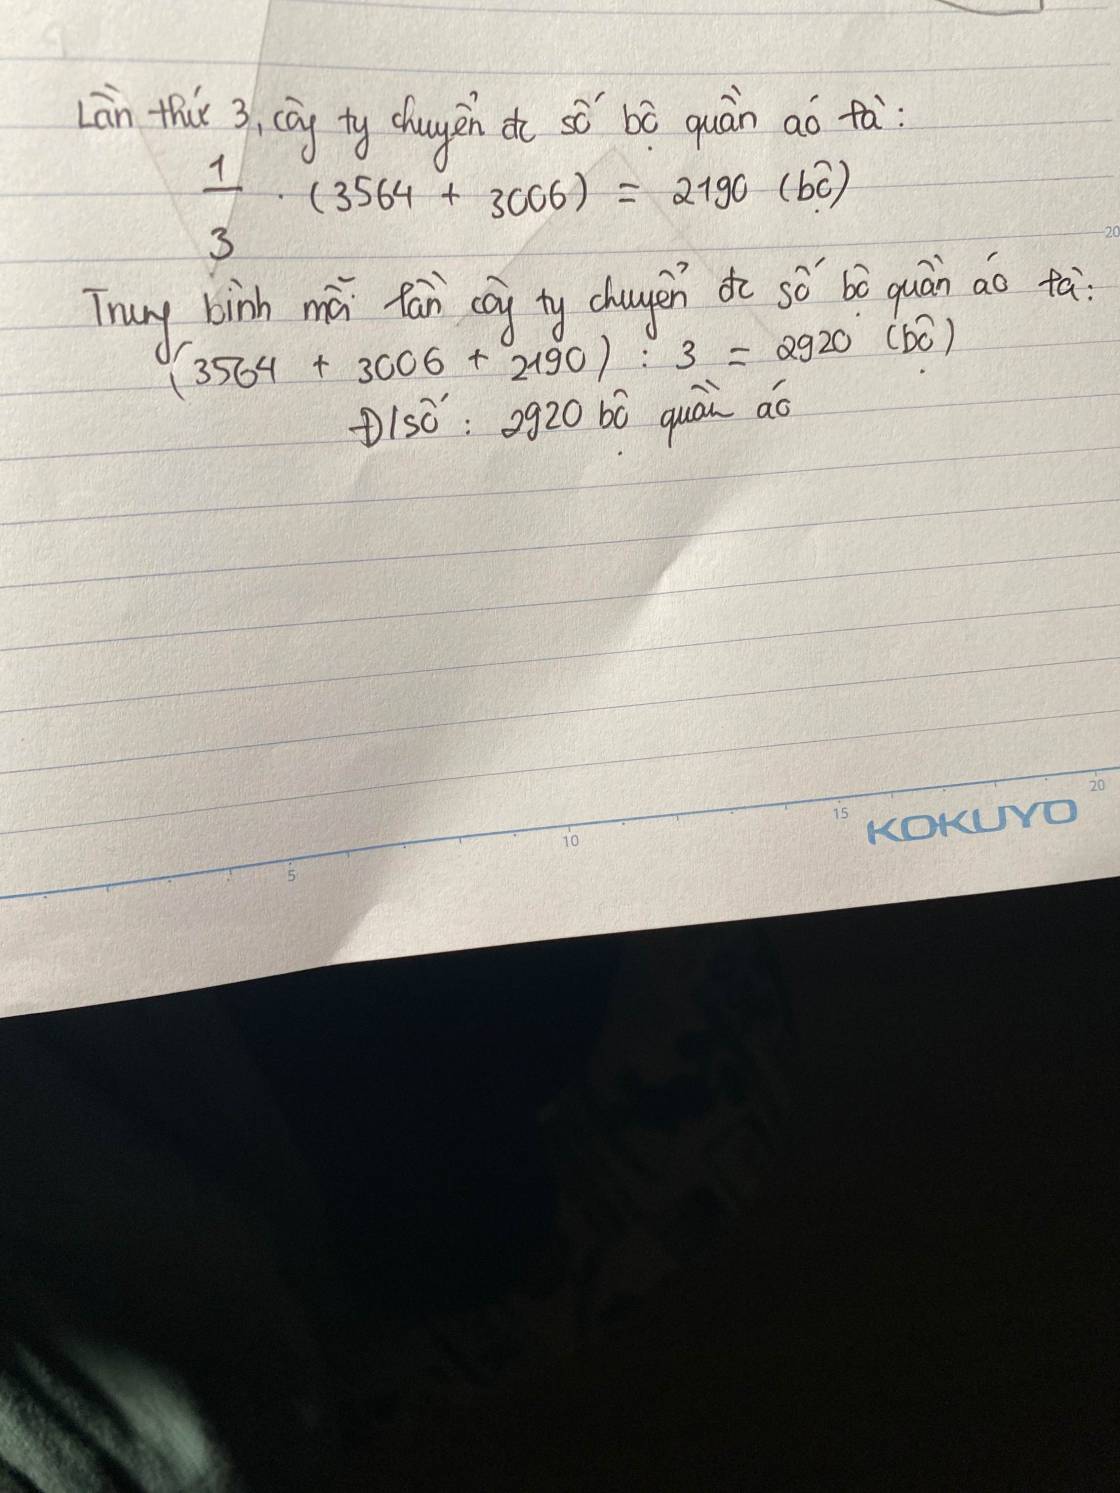 Lần thứ 3, côg ty chuyển đc số bộ quần áo là:
1/3 . (3564 + 3006) = 2190 (bộ)
20
Trung bình mỗi lần côg ty chuyển đc số bộ quần áo là:
(3564 + 3006 + 2190) : 3 = 2920 (bộ)
Đ/số: 2920 bộ quần áo
5 10 15 20
KOKUYO